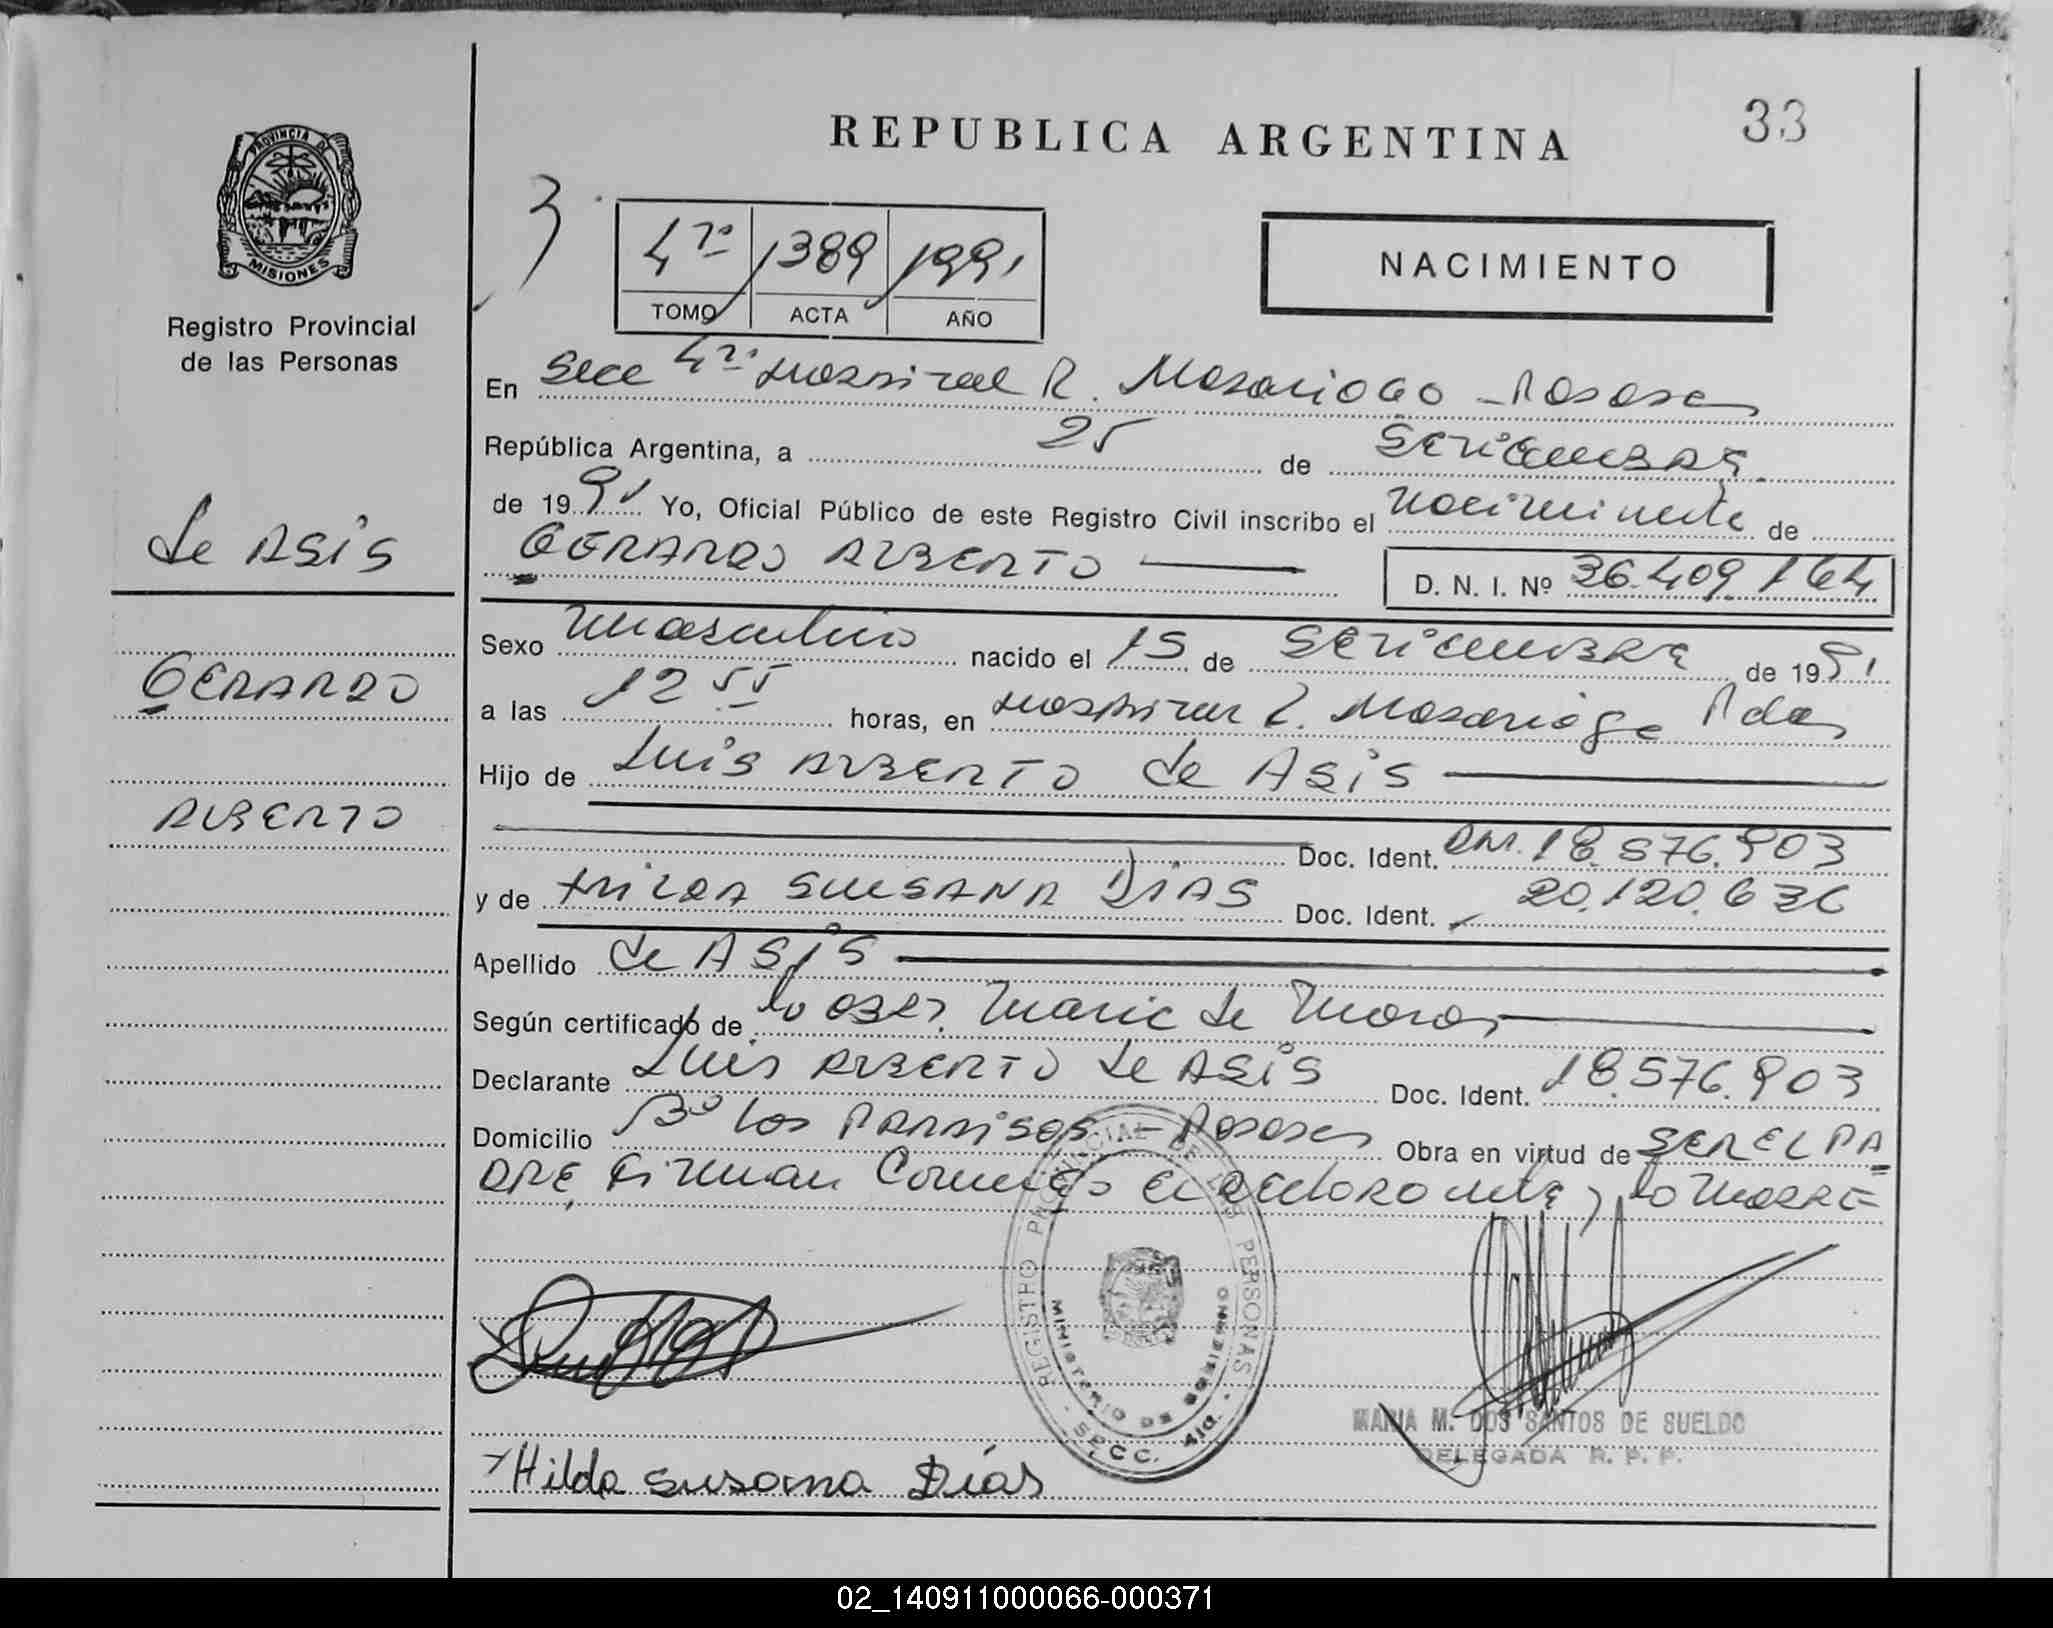 33
REPUBLICA ARGENTINA
PROVINCIA DE
MISIONES
Registro Provincial
de las Personas
3
4ta 1389 1991
TOMO ACTA AÑO
NACIMIENTO
En Secc 4ta Hospital R. Madariaga - Posadas
República Argentina, a 25 de SETIEMBRE
de 1991 Yo, Oficial Público de este Registro Civil inscribo el nacimiento de
GERARDO ALBERTO
D. N. I. Nº 36.409.164
de ASIS
GERARDO
ALBERTO
Sexo masculino nacido el 15 de SETIEMBRE de 1991
a las 12 55 horas, en Hospital R. Madariaga Pdas
Hijo de Luis ALBERTO de ASIS
Doc. Ident. DNI. 18.576.903
y de HILDA SUSANA DIAS Doc. Ident. 20.120.636
Apellido de ASIS
Según certificado de la OBST. Maria de
Declarante Luis ALBERTO de ASIS Doc. Ident. 18.576.903
Domicilio Bº Los PARAISOS - Posadas Obra en virtud de SER EL PA
DRE, Firman Conmigo el declarante y la MADRE
REGISTRO PROVINCIAL DE LAS PERSONAS
MINISTERIO DE GOBIERNO
SECC. 4ta.
MARIA M. DOS SANTOS DE SUELDO
DELEGADA R. P. P.
Hilda Susana Días
02_140911000066-000371